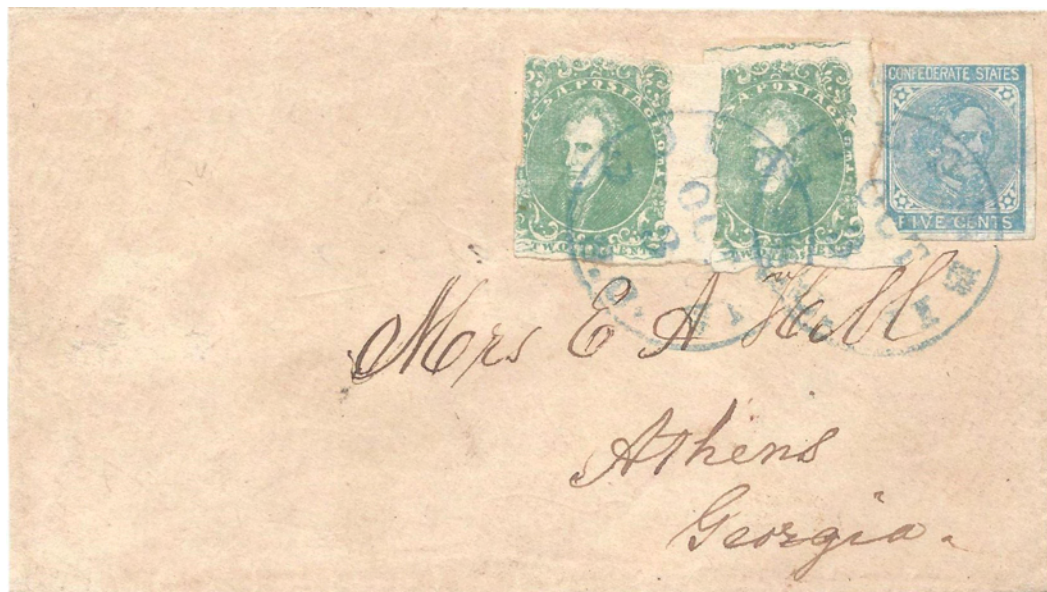 C.S.A. POSTAGE
TWO CENTS
C.S.A. POSTAGE
TWO CENTS
CONFEDERATE STATES
FIVE CENTS
OCT
Mrs E A Hill
Athens
Georgia.